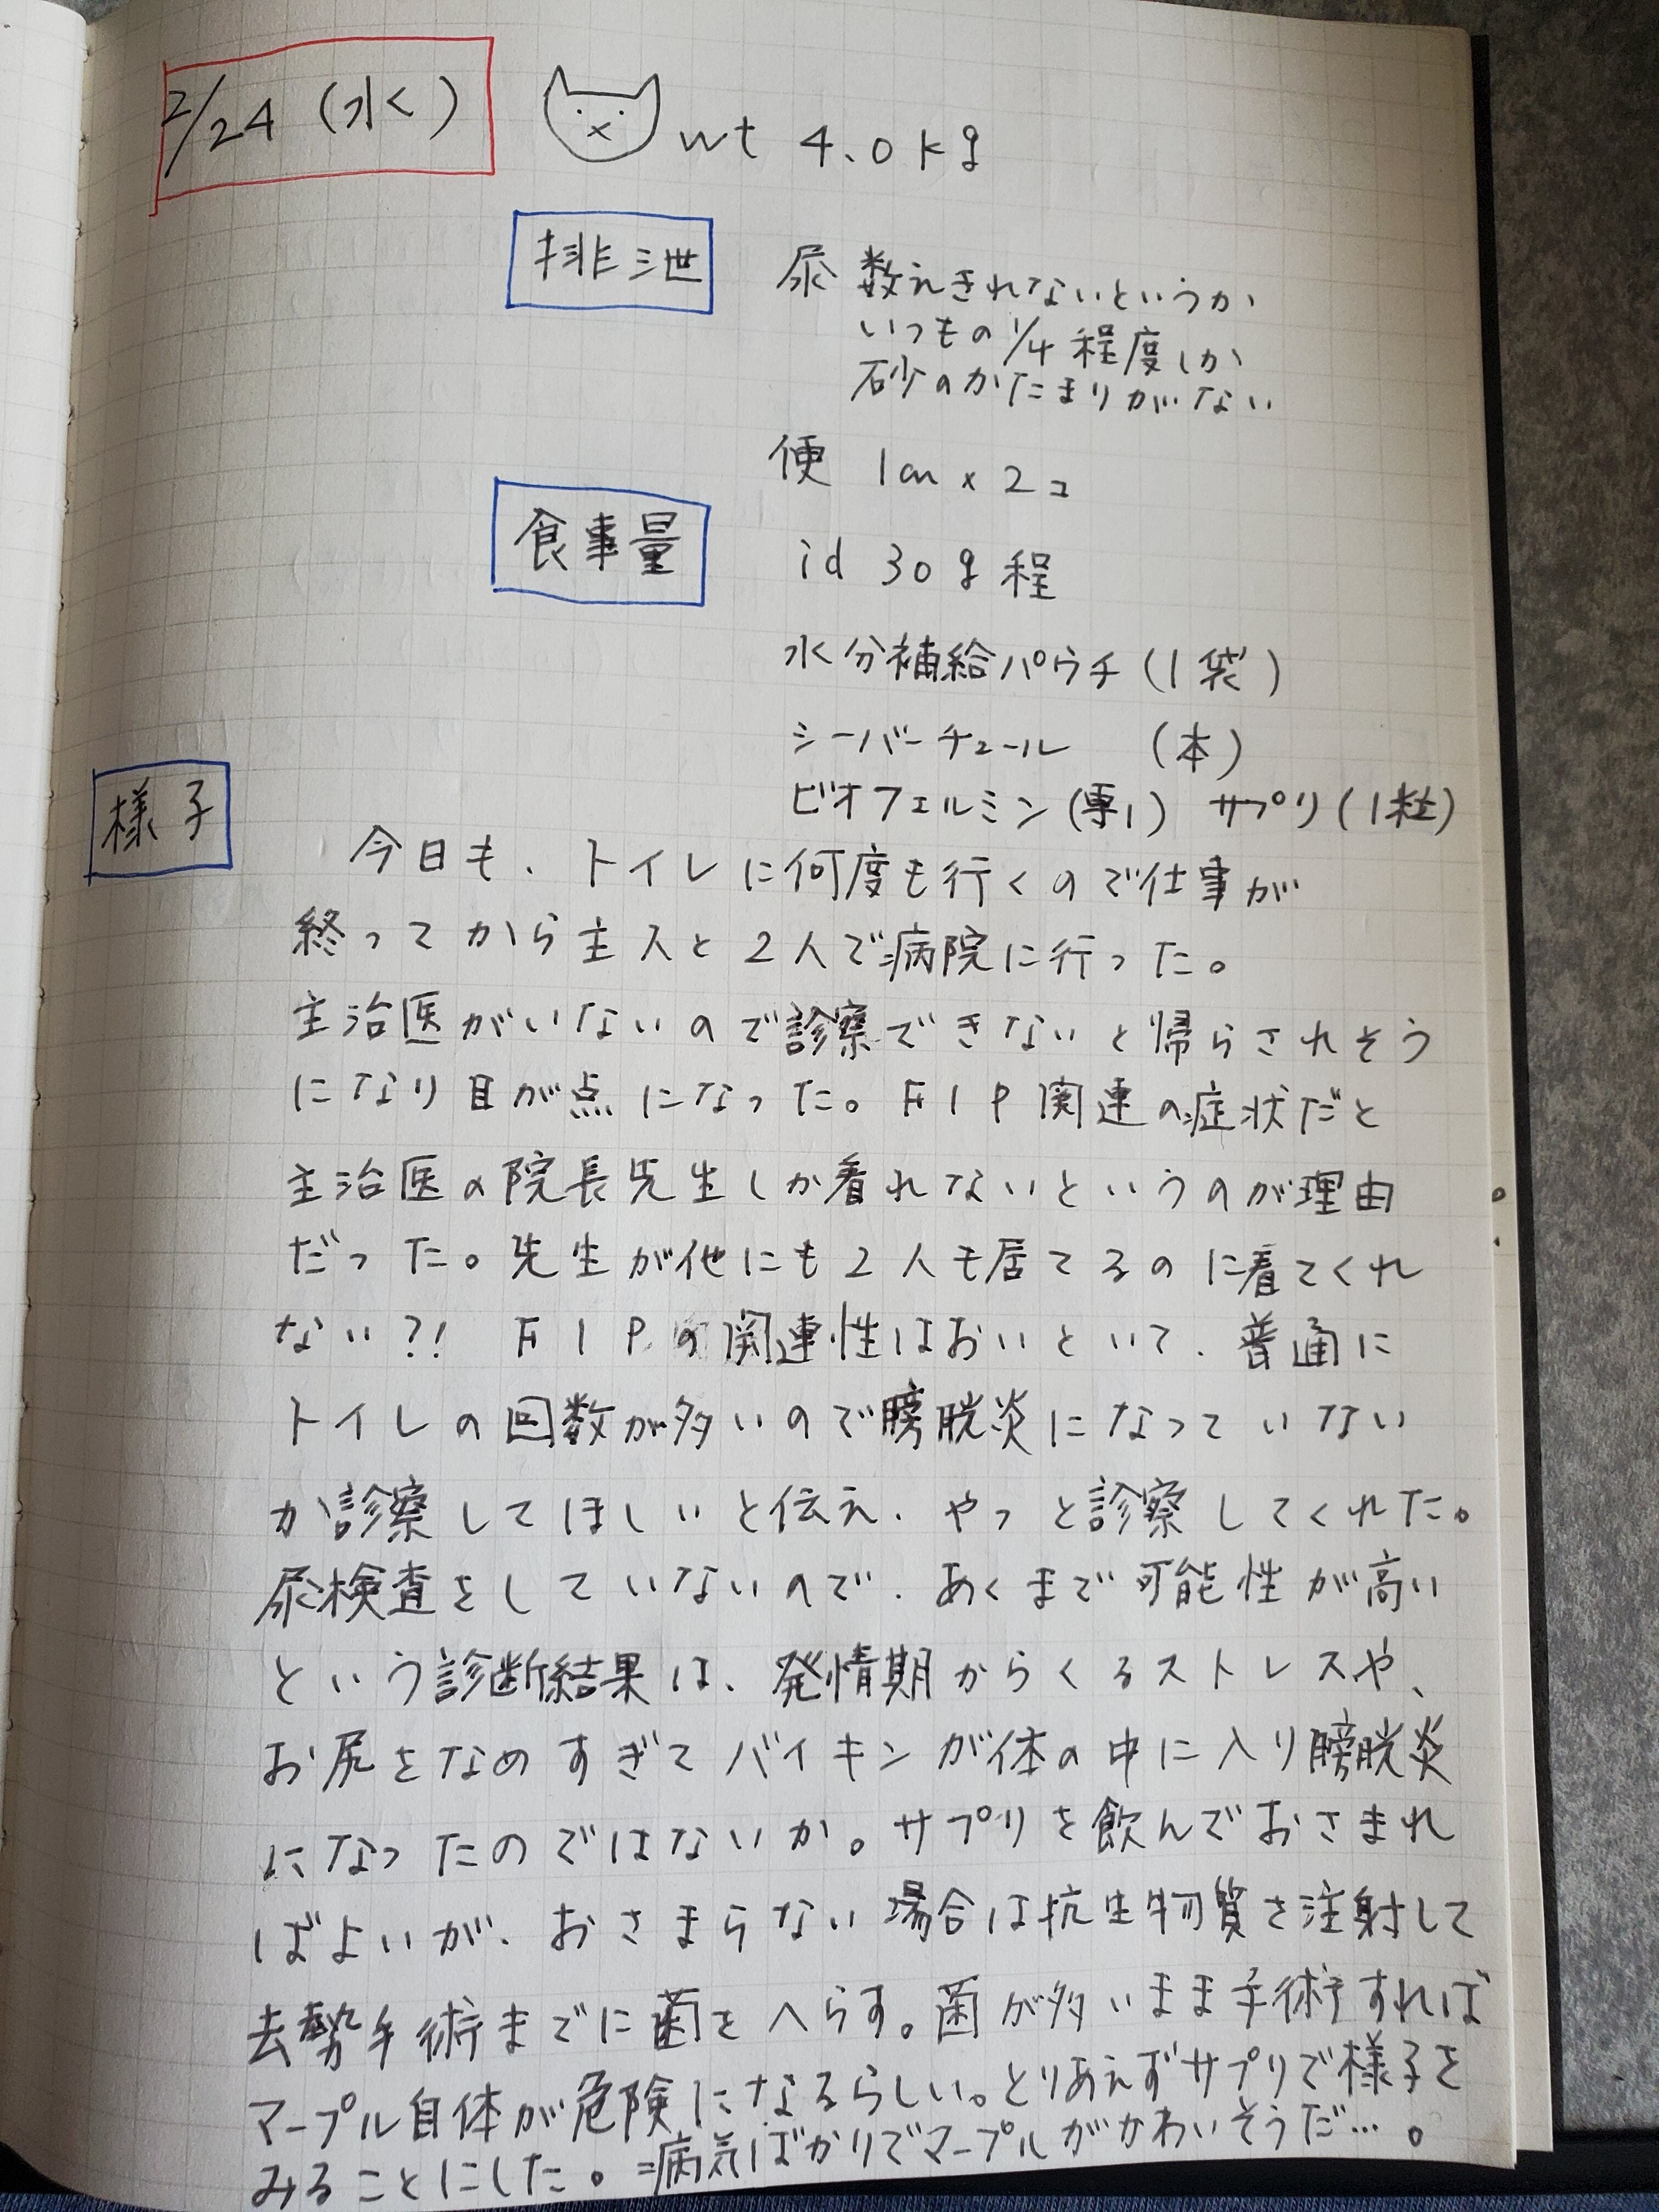 2/24(水)
wt 4.0kg
排泄
尿 数えきれないというか
いつもの1/4程度しか
砂のかたまりがない
便 1cm×2コ
食事量
id 30g程
水分補給パウチ(1袋)
シーバーチュール (本)
ビオフェルミン(専1) サプリ(1粒)
様子
今日も、トイレに何度も行くので仕事が
終ってから主人と2人で病院に行った。
主治医がいないので診察できないと帰らされそう
になり目が点になった。FIP関連の症状だと
主治医の院長先生しか看れないというのが理由
だった。先生が他にも2人も居てるのに看てくれ
ない?! FIPの関連性はおいといて、普通に
トイレの回数が多いので膀胱炎になっていない
か診察してほしいと伝え、やっと診察してくれた。
尿検査をしていないので、あくまで可能性が高い
という診断結果は、発情期からくるストレスや、
お尻をなめすぎてバイキンが体の中に入り膀胱炎
になったのではないか。サプリを飲んでおさまれ
ばよいが、おさまらない場合は抗生物質を注射して
去勢手術までに菌をへらす。菌が多いまま手術すれば
マープル自体が危険になるらしい。とりあえずサプリで様子を
みることにした。病気ばかりでマープルがかわいそうだ…。